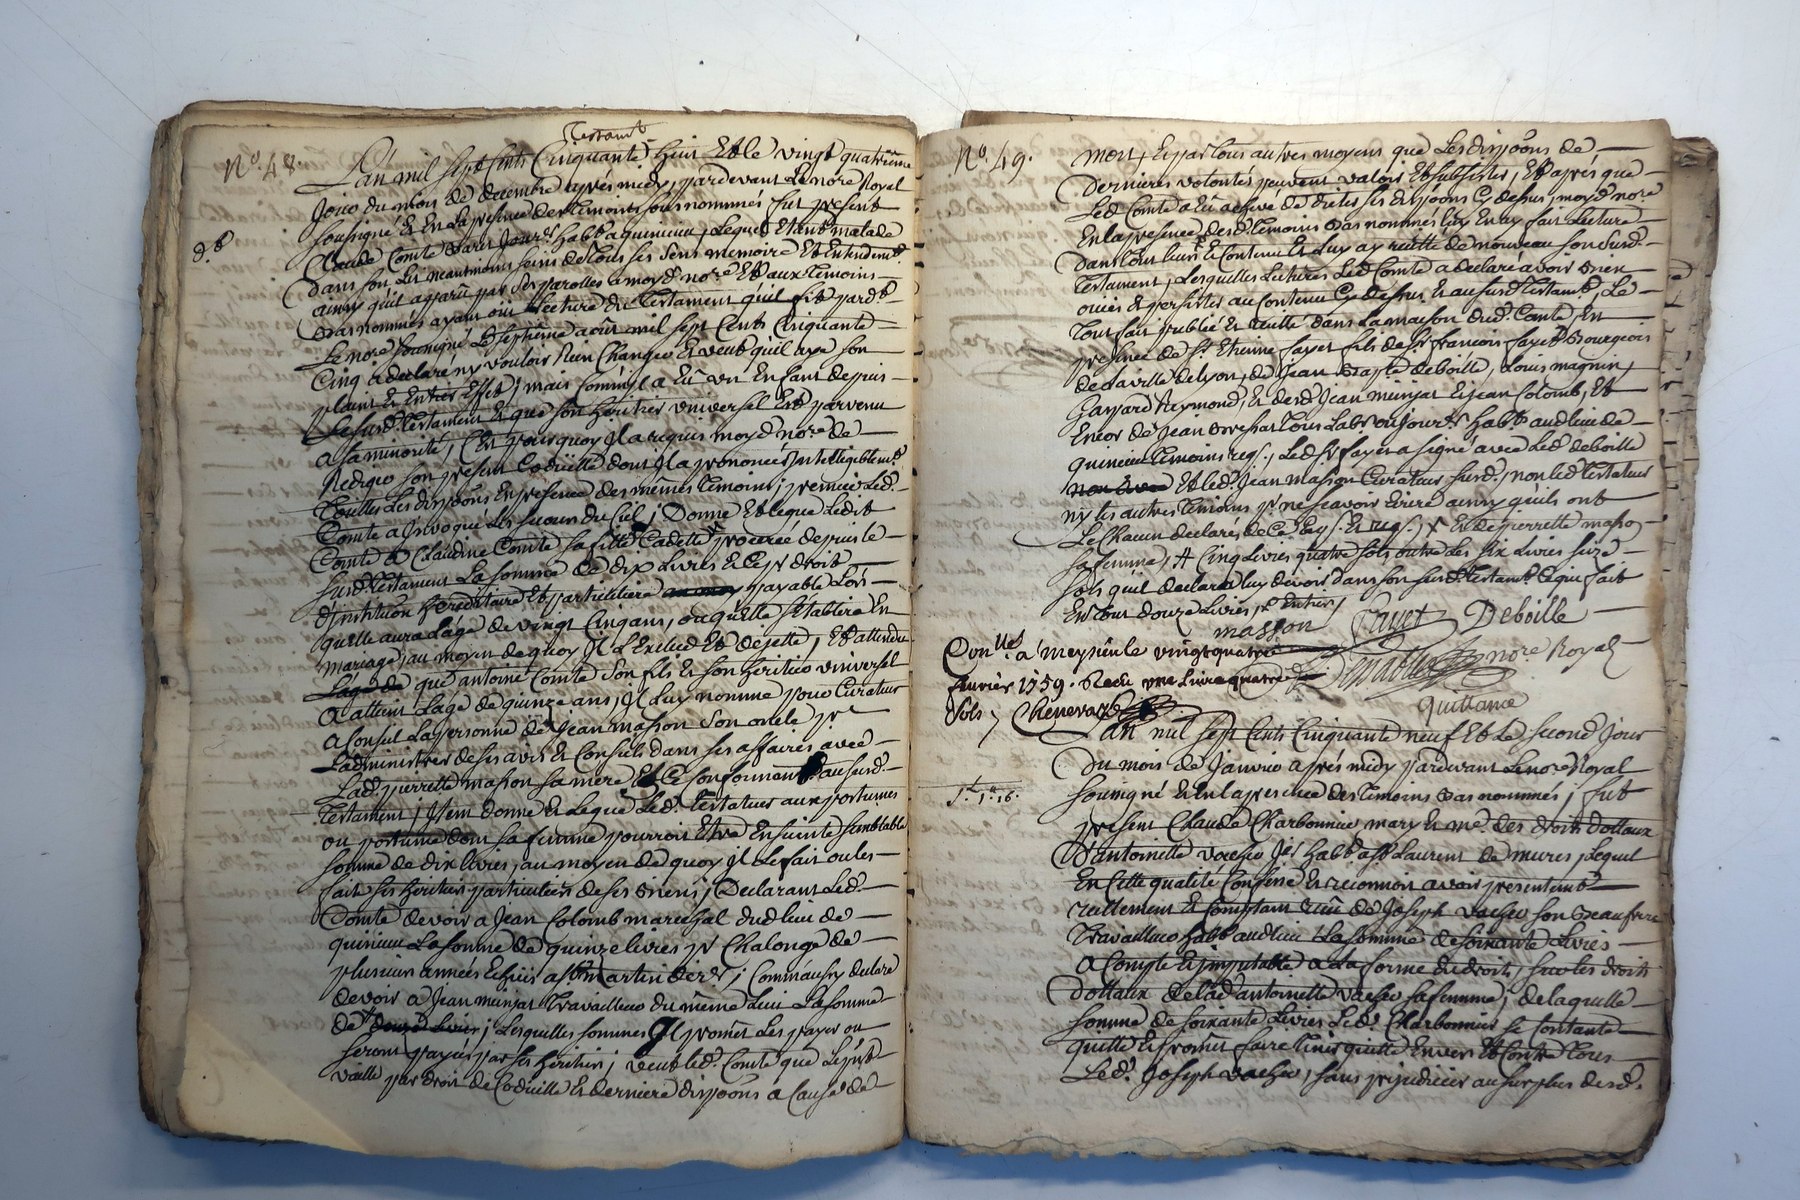 Testamt
No. 48.
L'an mil sept cents cinquante huit Et le vingt quatrième
Jour du mois de decembre après midy, pardevant Le nore Royal
soussigné Et En La presence des Temoins sous nommés fut present
Claude Comte Jourer habt a quincieu, Lequel Etant malade
dans son Lit neantmoins sains de tous ses sens memoire Et Entendemt
ainsy qu'il a paru par ses parolles a moyd nore Et aux Temoins
bas nommés ayant oui Lecture du Testament qu'il fit pardt
Le nore soussigné Le septième aout mil sept Cents Cinquante
Cinq a declaré n'y vouloir Rien Changer Et veut qu'il aye son
plain Et Entier Effet, mais Comme il a Eû un Enfant depuis
Le surd. Testament Et que son heritier universel Est parvenu
a sa minorité, C'est pourquoy Il a requis moyd nore de
Rediger son present Codicille dont Il a prononcé Intelligiblemt
Touttes Les disp̃ons En presence des mêmes Temoins, premier Led.
Comte a Invoqué Les secours du Ciel, Donne Et Legue Ledit
Comte a Claudine Comte sa fille Cadette procréé depuis le
surd. Testament La somme de dix Livres Et Ce pr droit
d'institution hereditaire Et particiliere payable Lors
qu'elle aura L'age de vingt Cinq ans, ou qu'elle s'etablira En
mariage, au moyen de quoy Il L'Exclud Et dejette, Et attendu
que antoine Comte son fils Et son heritier universel
a atteint L'age de quinze ans, Il Luy nomme pour Curateur
a Conseil La personne de Jean masson son oncle pr
L'administrer de ses avis Et Conseils dans ses affaires avec
Lad. pierrette masson sa mere Et Ce Conformement au surd.
Testament, Item donne Et Legue Led. Testateur aux postumes
ou postume dont sa femme pourroit Etre Enceinte semblable
somme de dix Livres, au moyen de quoy Il Le fait ou les
fait ses heritiers particuliers de ses biens, Declarant Led.
Comte devoir a Jean Colomb marechal dud. lieu de
quincieu La somme de quinze livres pr Chalonge de
plusieurs années Echües a St martin der, Comm'aussy declare
devoir a Jean meinjat Travailleur du même Lieu La somme
de ; Lesquelles sommes Il promet Les payer ou
seront payées par ses heritiers, veut led. Comte que Le prt
vaille par droit de Codicille Et derniere disp̃ons a Cause de
No. 49.
mort, Et par tous autres moyens que Les disp̃ons de
dernieres volontés peuvent valoir Et subsister, Et après que
Led. Comte a Eû achevé de dicter ses disp̃ons Cy dessus, moyd nore
En la presence desd. Temoins bas nommés luy En ay fait Lecture
dans tout leur Contenu Et Luy ay relitte de nouveau son surd.
Testament, Lesquelles Lectures Led. Comte a declaré avoir bien
ouies Et persister au Contenu Cy dessus Et au surd. Testamt, Le
Tout fait publié Et Recitté dans La maison dud. Comte, En
presence de Sr Etienne fayet fils de Sr francois fayet Bourgeois
de La ville de Lyon, de Jean baptê deboille, Louis magnin,
Gaspard Reymond, Et desd. Jean meinjat Et Jean Colomb, Et
Encor de Jean tous Labrs ou jourers habts aud. lieu de
quincieu Temoins req., Led. Sr fayet a signé avec Led. deboille
Et led. Jean masson Curateur surd., non led. testateur
ny les autres Temoins pr ne sçavoir Ecrire ainsy qu'ils ont
Le Chacun declarés de Ce . Et req., Et de pierrette masson
sa femme, # Cinq Livres quatre sols outre Les six Livres seize
sols qu'il declara luy devoir dans son surd. Testamt, Ce qui fait
En tout douze Livres pr Entier,
masson Fayet Deboille
nore Royal
Conllé a meysieu le vingt quatre
fevrier 1759. Reçu une Livre quatre
sols, Chenevaz
quittance
L'an mil sept Cents Cinquante neuf Et Le second Jour
Du mois de Janvier après midy pardevant Le nore Royal
soussigné Et En La presence des Temoins bas nommés, fut
present Claude Charbonnier mary Et me. des droits dottaux
d'antoinette vacher habt a St Laurent de mures, Lequel
En cette qualité Confesse Et reconnoit avoir presentemt
reellement Et Comptant Reçu de Joseph vacher son beau frere
Travailleur habt aud. lieu La somme de soixante Livres
a Compte Et imputable a La forme du droit, sur les droits
dottaux de Lad. antoinette vacher sa femme, de laquelle
somme de soixante Livres Led. Charbonnier se Contante
quitte Et promet faire tenir quitte Envers Et Contre Tous
Led. Joseph vacher, sans prejudicier au surplus desd.